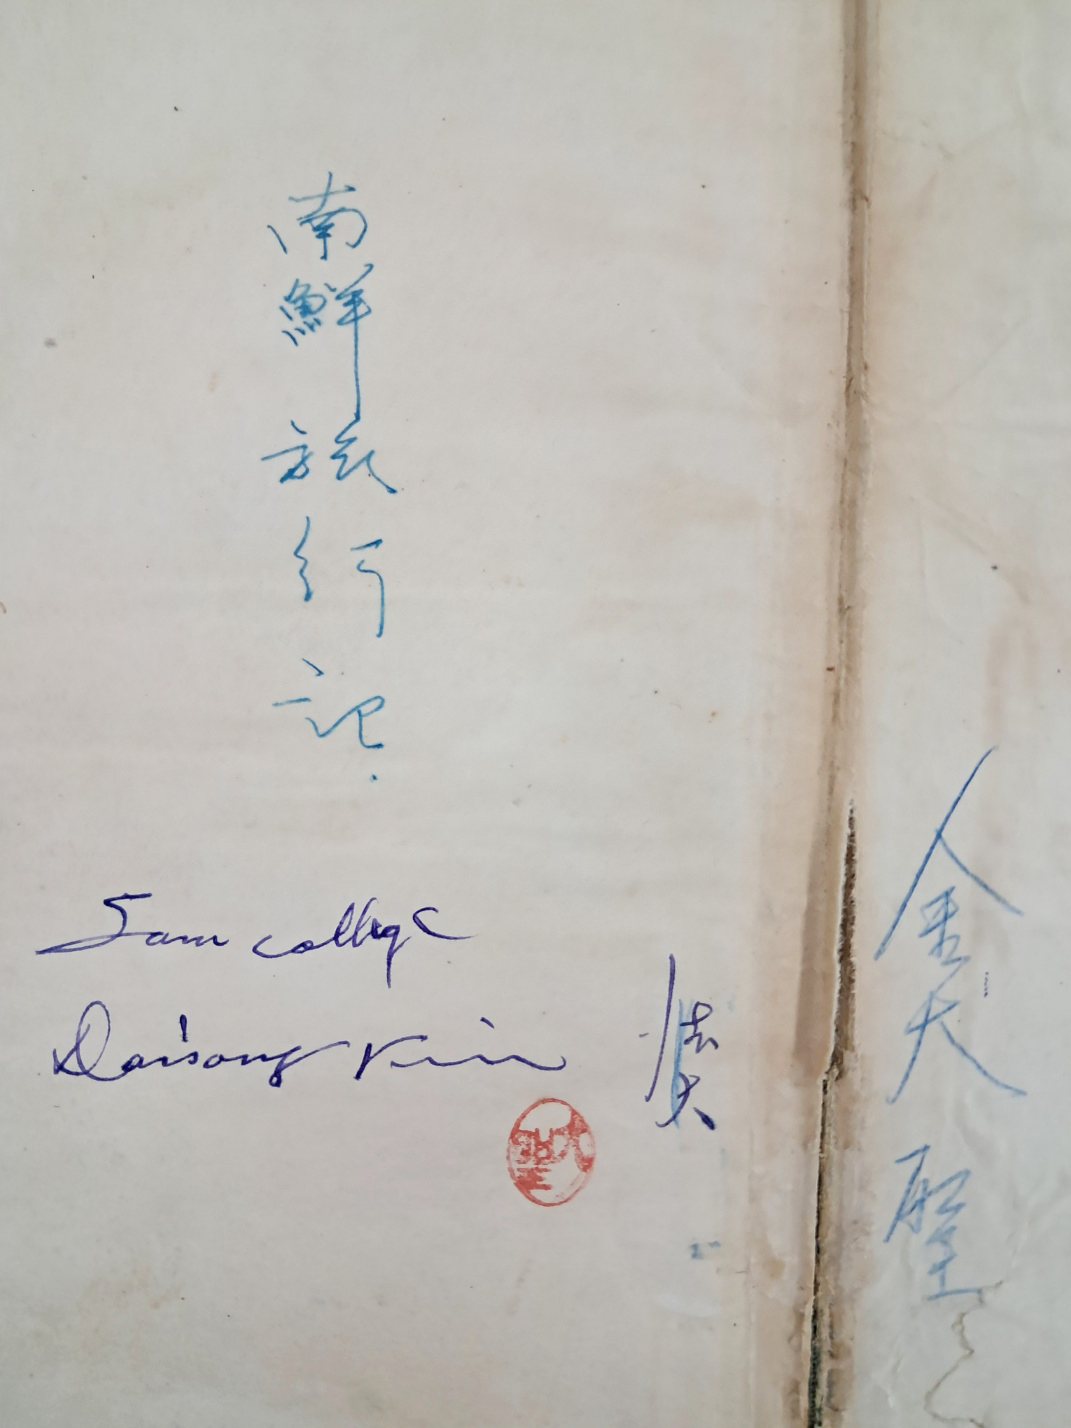 南鮮旅行記.
Sam college
Daisong Kim
金大聖